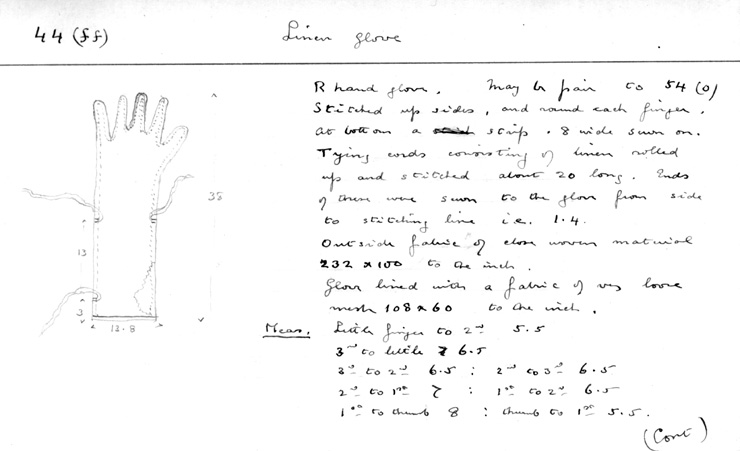 44 (ff)
Linen glove
R hand glove. May be pair to 54 (o)
Stitched up sides, and round each finger.
At bottom a strip .8 wide sewn on.
Tying cords consisting of linen rolled
up and stitched about 20 long. Ends
of these were sewn to the glove from side
to stitching line i.e. 1.4.
Outside fabric of close woven material
232 x 100 to the inch.
Glove lined with a fabric of very loose
mesh 108 x 60 to the inch.
Meas. Little finger to 2nd 5.5
3rd to little 6.5
3rd to 2nd 6.5 : 2nd to 3rd 6.5
2nd to 1st 7 : 1st to 2nd 6.5
1st to thumb 8 : thumb to 1st 5.5.
(Cont)
35
13
3
12.8